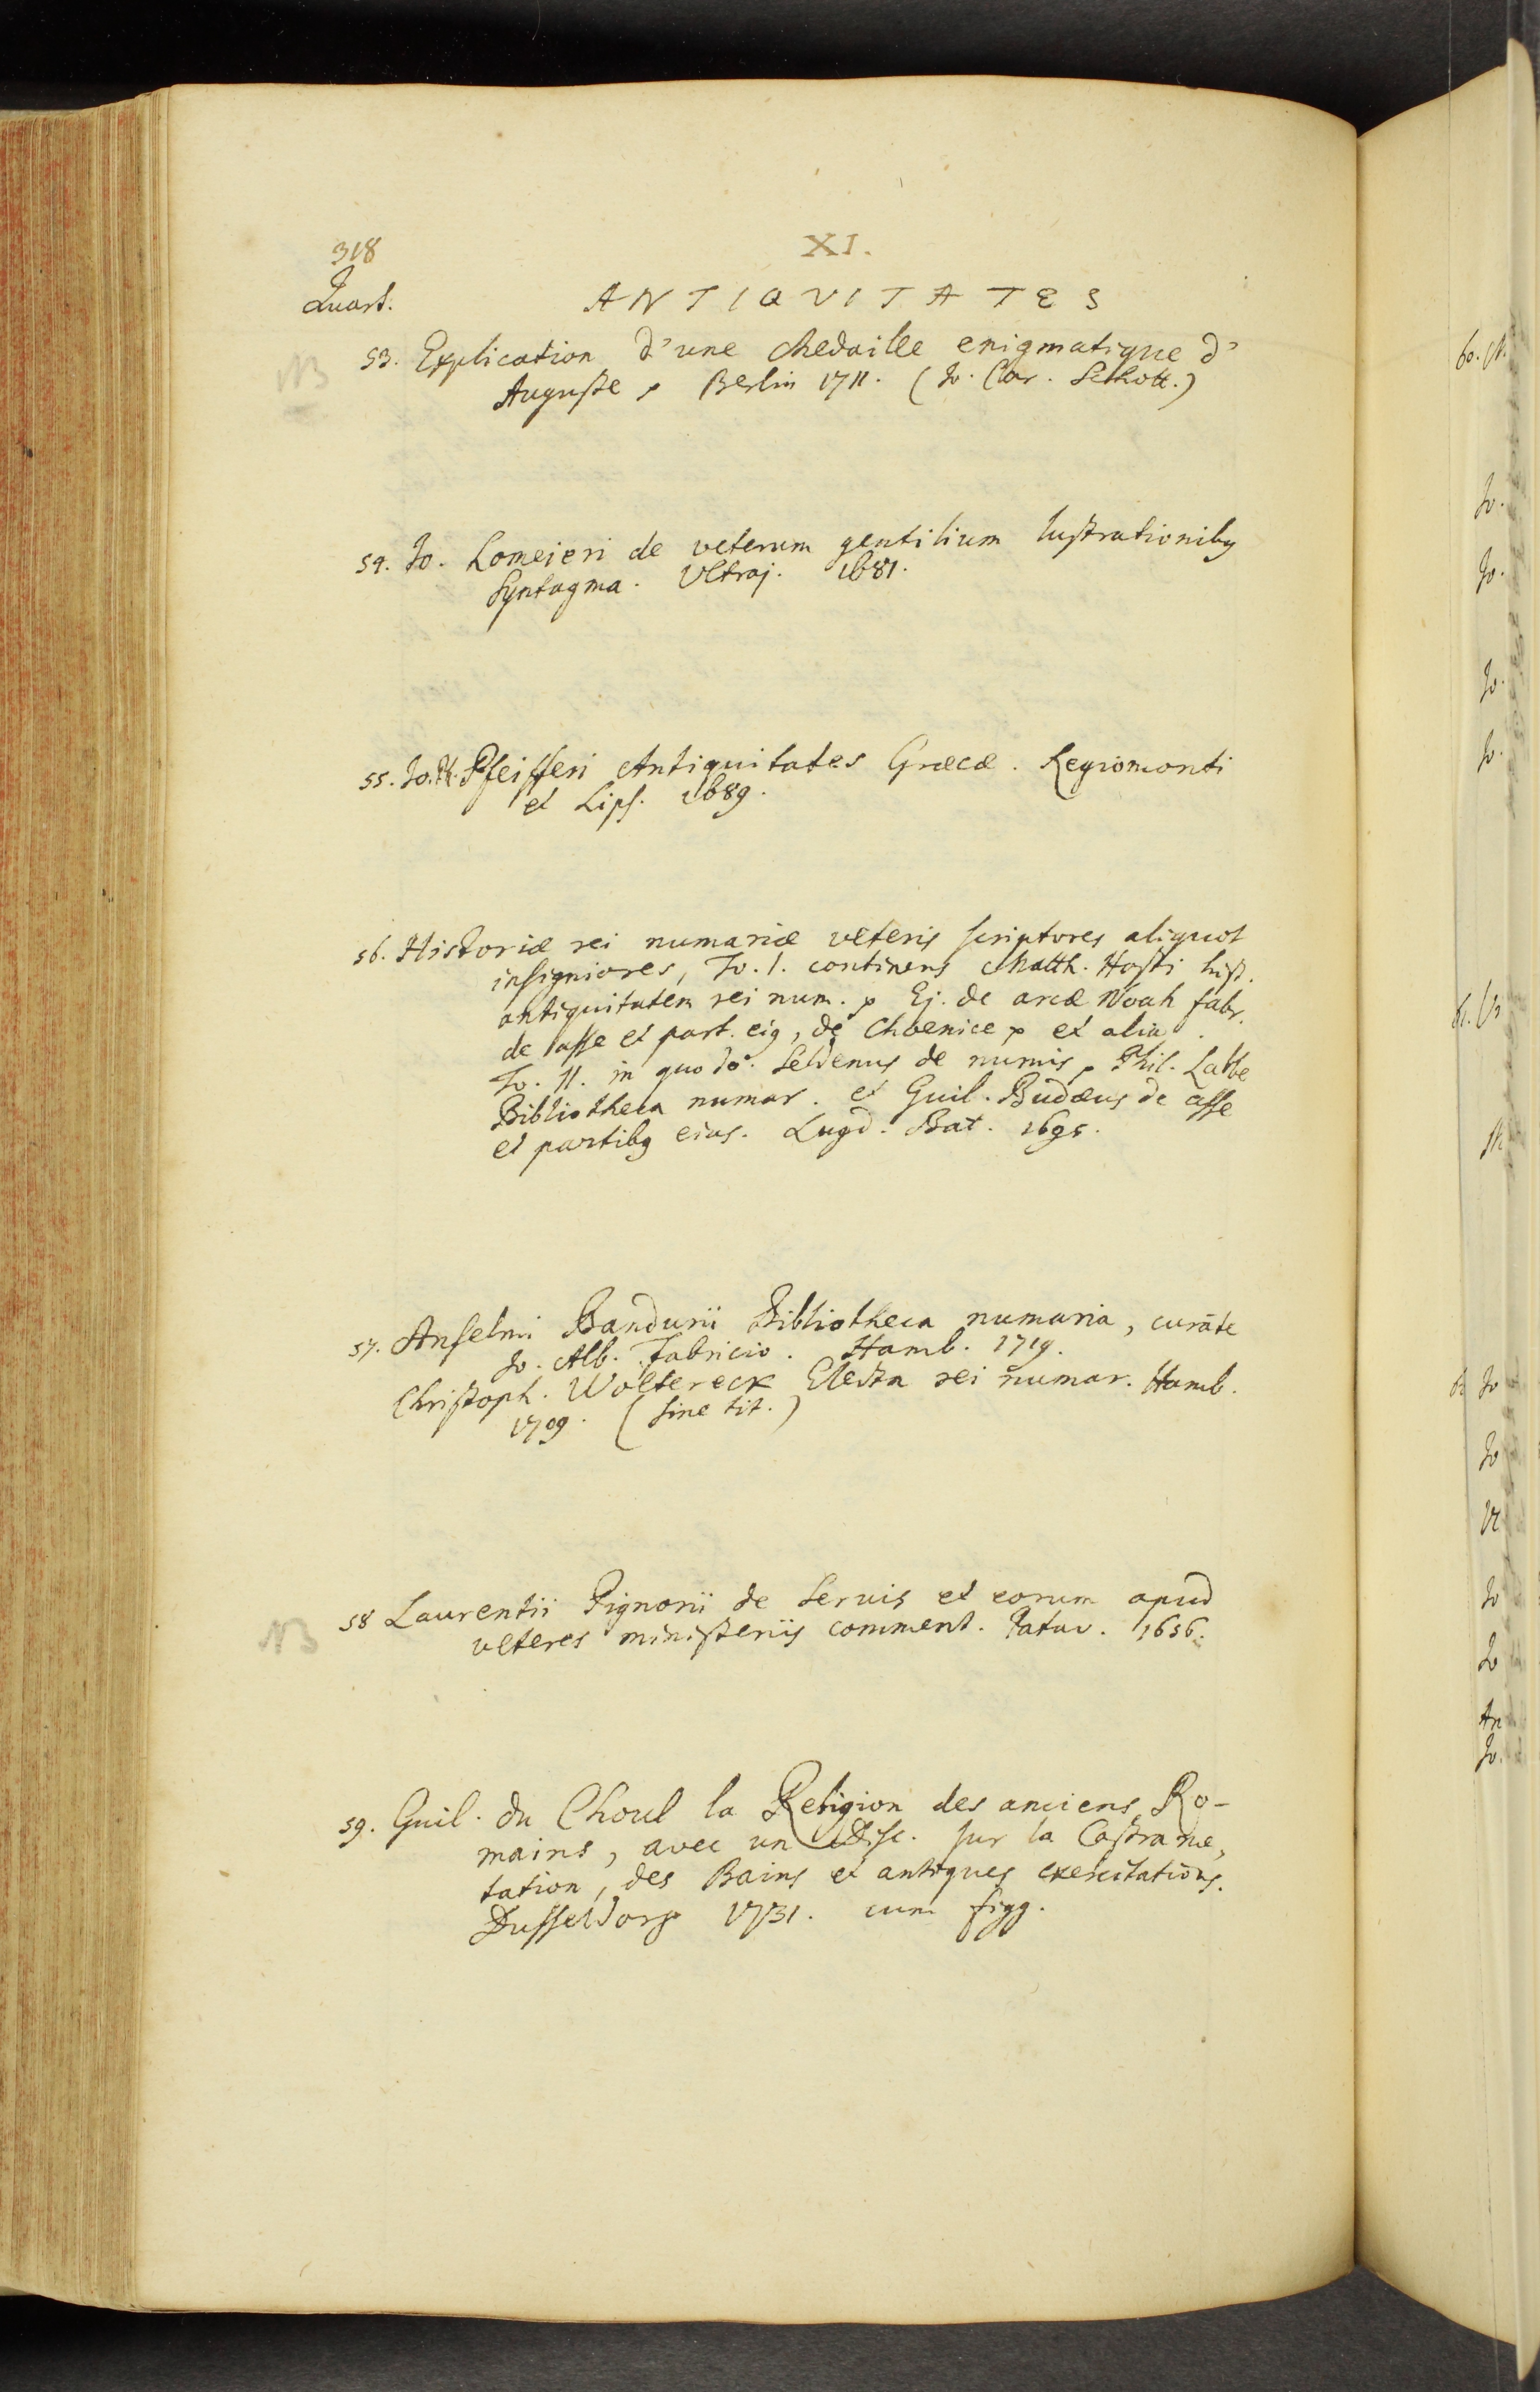 318
XI.
Quart.
ANTIQVITATES
NB
53. Explication d'une Medaille enigmatique d'
Auguste p Berlin 1711. (Jo. Car. Schott.)
54. Jo. Lomeieri de veterum gentilium lustrationibq
Syntagma. Vltraj. 1681.
55. Jo. Pfeifferi Antiquitates Græcæ. Regiomonti
et Lips. 1689.
56. Historiæ rei numariæ veteris scriptores aliquot
insigniores, To. I. continens Matth. Hosti hist.
antiquitatem rei num. p Ej. de arcæ Noah fabr.
de asse et part. eiq, de Choenice p et alia.
To. II. in quo Jo. Seldenus de numis p Phil. Labbe
Bibliotheca numar. et Guil. Budæus de asse
et partibq eius. Lugd. Bat. 1695.
57. Anselmi Bandurii Bibliotheca numaria, curāte
Jo. Alb. Fabricio. Hamb. 1719.
Christoph. Woltereck Electa rei numar. Hamb.
1709. (sine tit.)
NB
58 Laurentii Pignorii de Servis et eorum apud
veteres ministeriis comment. Patav. 1656.
59. Guil. du Choul la Religion des anciens Ro-
mains, avec un Disc. sur la Castrame,
tation, des Bains et antiques exercitations.
Dusseldorp 1731. cum figg.
60.
Jo.
Jo.
Jo.
Jo.
61.
Jo
Jo
Jo
Jo.